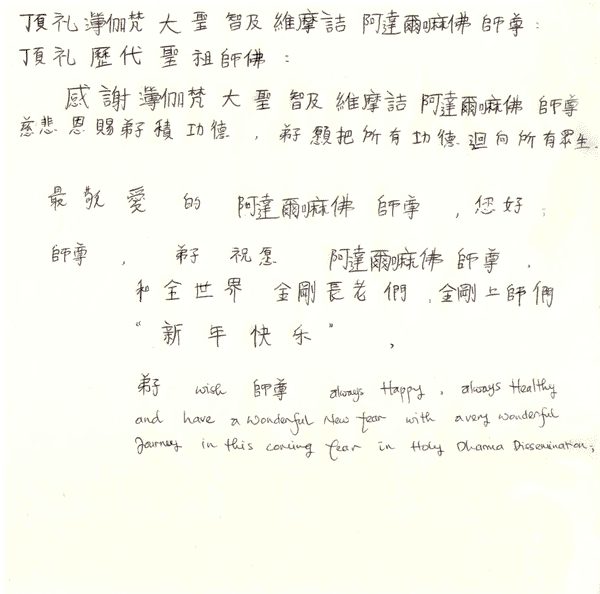 頂礼薄伽梵大聖智及維摩詰阿達爾嘛佛師尊:
頂礼歷代聖祖師佛:
感謝薄伽梵大聖智及維摩詰阿達爾嘛佛師尊
慈悲恩賜弟子積功德,弟子願把所有功德迴向所有眾生.
最敬愛的阿達爾嘛佛師尊,您好;
師尊,弟子祝愿阿達爾嘛佛師尊,
和全世界金剛長老們,金剛上師們
"新年快乐",
弟子 wish 師尊 always Happy, always Healthy
and have a Wonderful New Year with a very wonderful
Journey in this coming Year in Holy Dharma Dissemination;